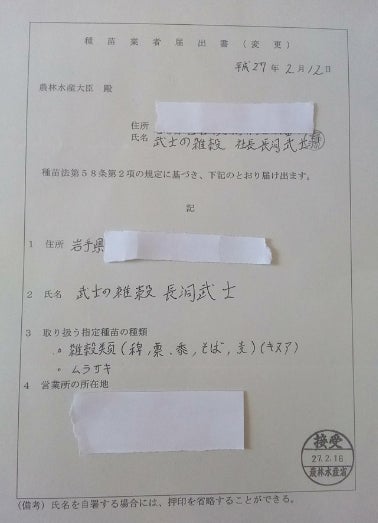 種苗業者届出書(変更)
平成27年2月12日
農林水産大臣 殿
住所
氏名 武士の雑穀 社長 長洞武士
種苗法第58条第2項の規定に基づき、下記のとおり届け出ます。
記
1 住所 岩手県
2 氏名 武士の雑穀 長洞武士
3 取り扱う指定種苗の種類
○ 雑穀類(稗,粟,黍,そば,麦)(キヌア)
○ ムラサキ
4 営業所の所在地
接受
27.2.16
農林水産省
(備考) 氏名を自署する場合には、押印を省略することができる。